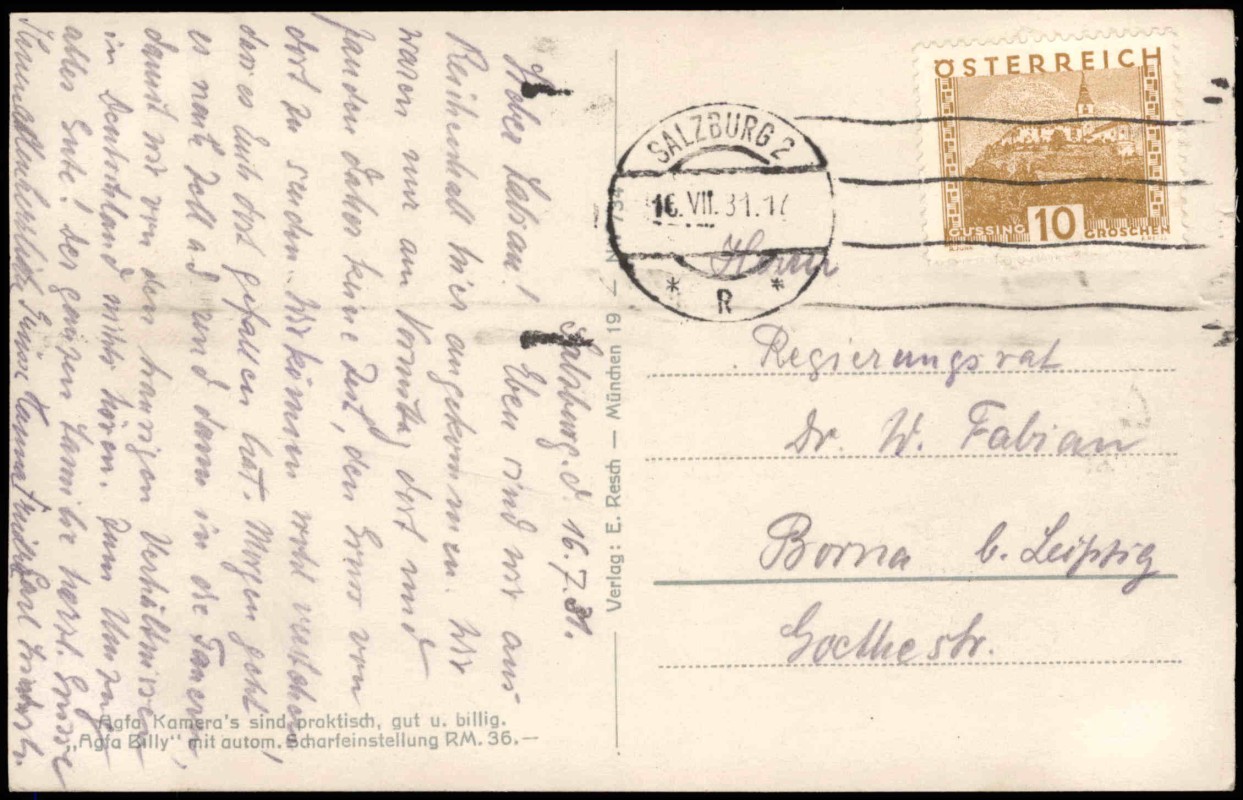 Salzburg. d. 16.7.31.
Lieber Fabian! Eben sind wir aus
Reichenhall hier angekommen. Wir
waren nur am Vormittag dort und
fanden daher keine Zeit, den Gruss von
dort zu senden. Wir können wohl verstehen,
dass es Euch dort gefallen hat. Morgen geht
es nach Zell a/ und dann in die Tauern,
damit wir von den traurigen Verhältnissen
in Deutschland nichts hören. Zum Umzug
alles Gute! Der ganzen Familie herzl. Grüsse
Verlag: E. Resch — München 19 — N 734
Agfa Kamera's sind praktisch, gut u. billig.
„Agfa Billy" mit autom. Scharfeinstellung RM. 36.—
ÖSTERREICH
GÜSSING 10 GROSCHEN
SALZBURG 2
16.VII.31.17
* R *
Herrn
Regierungsrat
Dr. W. Fabian
Borna b. Leipzig
Goethestr.